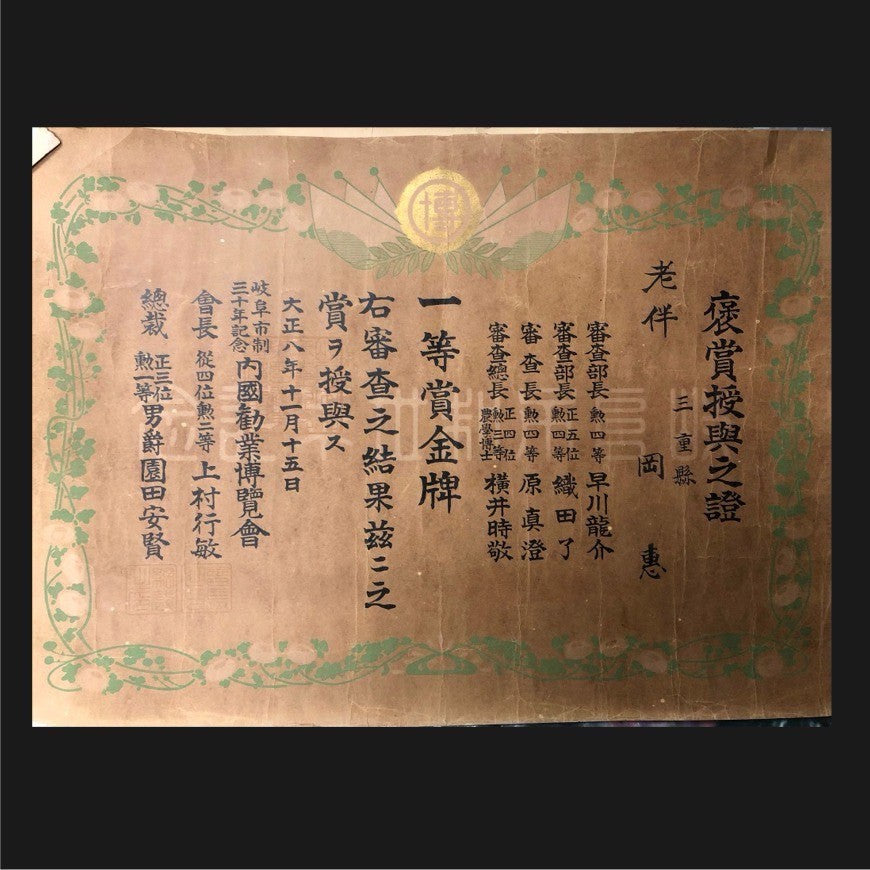 博
褒賞授與之證
三重縣
老伴 岡 惠
審査部長 勲四等 早川龍介
審査部長 正五位勲四等 織田了
審査長 勲四等 原真澄
審査總長 正四位勲三等農學博士 横井時敬
一等賞金牌
右審査之結果茲ニ之
賞ヲ授與ス
大正八年十一月十五日
岐阜市制三十年記念 内國勸業博覽會
會長 從四位勲二等 上村行敏
總裁 正三位勲一等 男爵 園田安賢